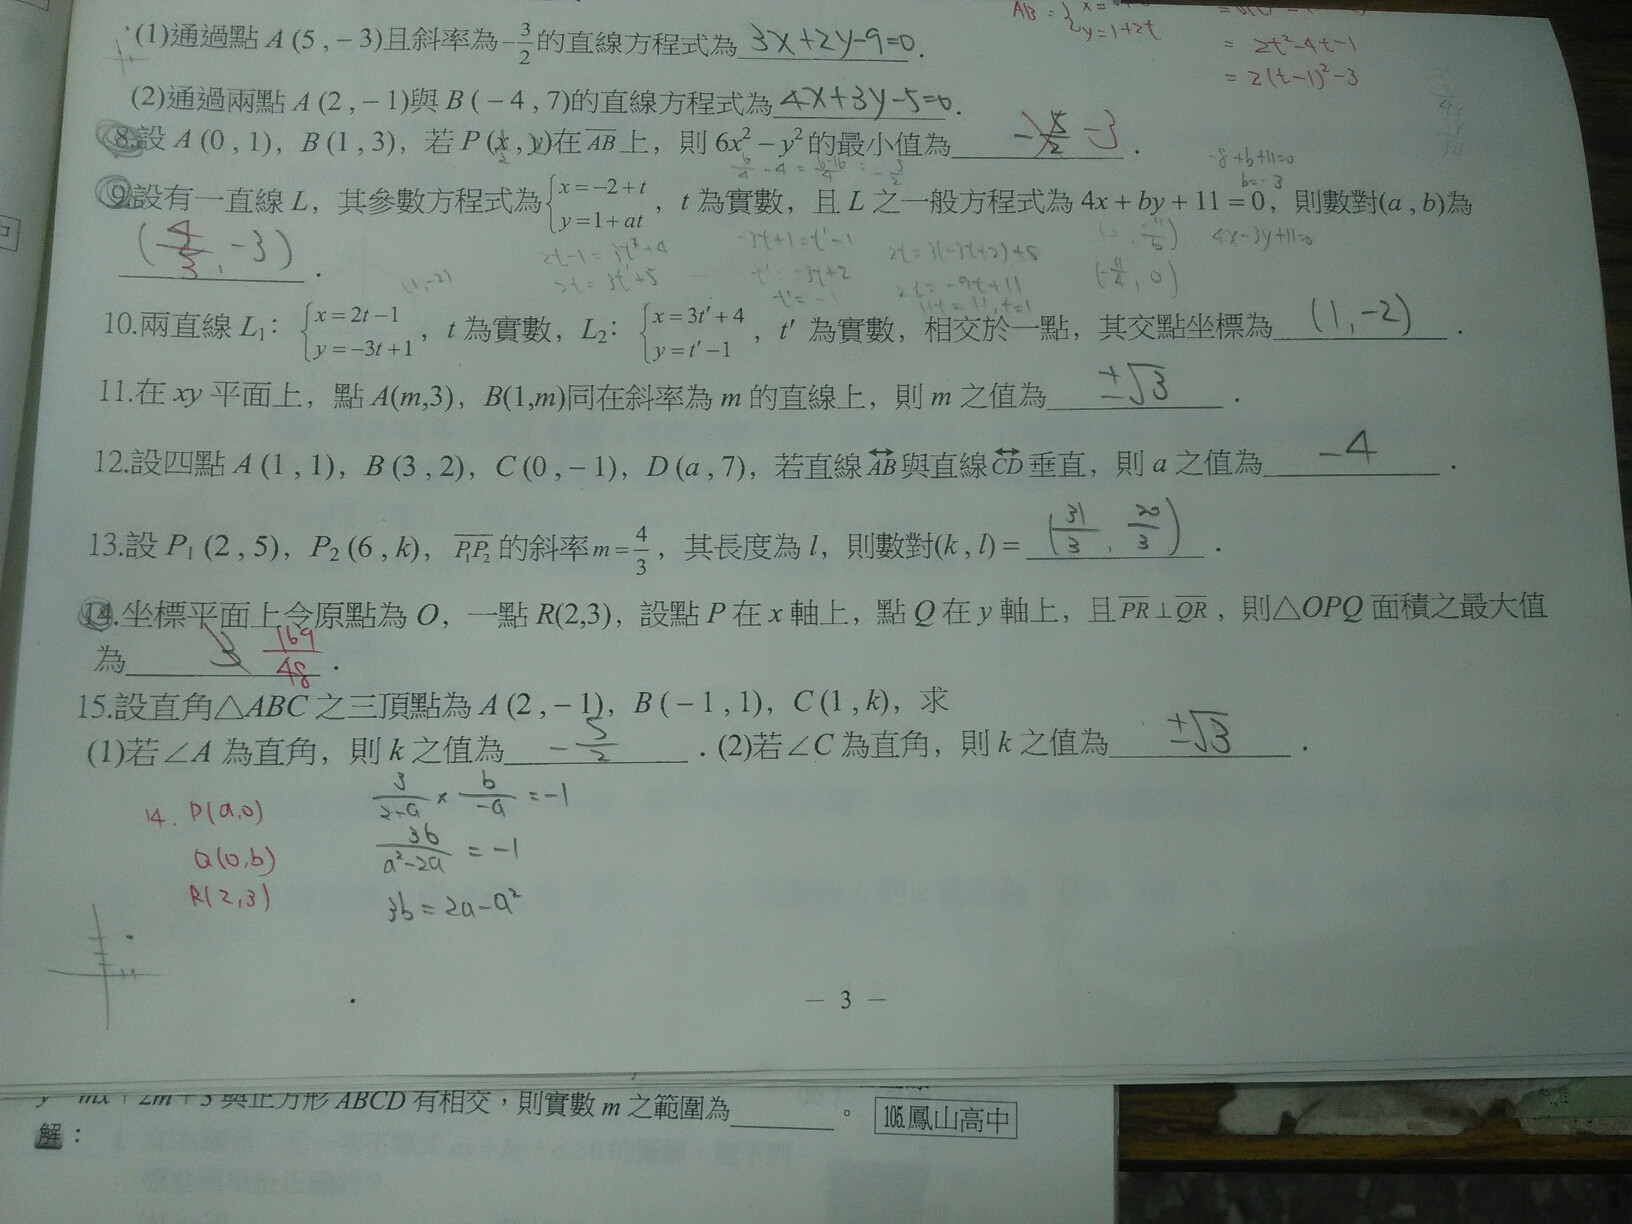 (1)通過點 A (5 , −3)且斜率為−3/2的直線方程式為 3x+2y−9=0 .
(2)通過兩點 A (2 , −1)與 B (−4 , 7)的直線方程式為 4x+3y−5=0 .
= 2t²−4t−1
= 2(t−1)²−3
y=1+2t
8.設 A (0 , 1)，B (1 , 3)，若 P (x , y)在 AB 上，則 6x²−y² 的最小值為 −5/2 −3 .
−8+b+11=0
b=−3
9.設有一直線 L，其參數方程式為{x=−2+t, y=1+at，t 為實數，且 L 之一般方程式為 4x+by+11=0，則數對(a , b)為
(4/3, −3) .
4x−3y+11=0
2t−1=3t'+4
2t=3t'+5
−3t+1=t'−1
t'=−3t+2
t'=−1
2t=3(−3t+2)+5
2t=−9t+11
11t=11, t=1
(−11/4, 0)
(1,−2)
10.兩直線 L1：{x=2t−1, y=−3t+1，t 為實數，L2：{x=3t'+4, y=t'−1，t' 為實數，相交於一點，其交點坐標為 (1,−2) .
11.在 xy 平面上，點 A(m,3)，B(1,m)同在斜率為 m 的直線上，則 m 之值為 ±√3 .
12.設四點 A (1 , 1)，B (3 , 2)，C (0 , −1)，D (a , 7)，若直線 AB 與直線 CD 垂直，則 a 之值為 −4 .
13.設 P1 (2 , 5)，P2 (6 , k)，P1P2 的斜率 m=4/3，其長度為 l，則數對(k , l) = (31/3, 20/3) .
14.坐標平面上令原點為 O，一點 R(2,3)，設點 P 在 x 軸上，點 Q 在 y 軸上，且 PR⊥QR，則△OPQ 面積之最大值
為 3 169/48 .
15.設直角△ABC 之三頂點為 A (2 , −1)，B (−1 , 1)，C (1 , k)，求
(1)若∠A 為直角，則 k 之值為 −5/2 . (2)若∠C 為直角，則 k 之值為 ±√3 .
14. P(a,0)
Q(0,b)
R(2,3)
3/(2−a) × b/−a = −1
3b/(a²−2a) = −1
3b=2a−a²
− 3 −
y mx+2m+3 與正方形 ABCD 有相交，則實數 m 之範圍為 。 105.鳳山高中
解：